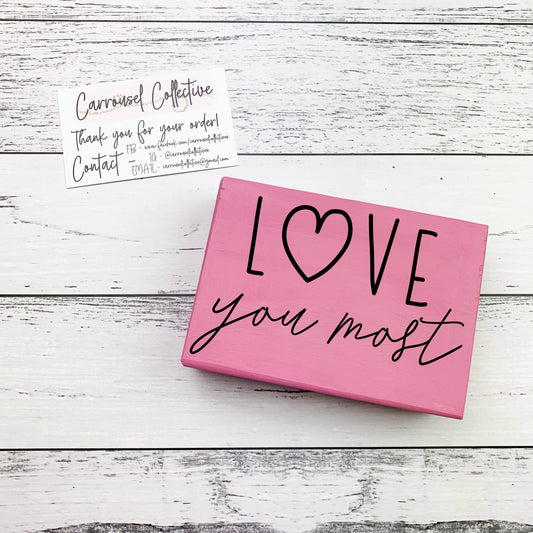 Carrousel Collective
Thank you for your order!
Contact - FB - www.facebook.com/carrouselcollective
IG - @carrouselcollective
EMAIL - carrouselcollective@gmail.com
LOVE
you most